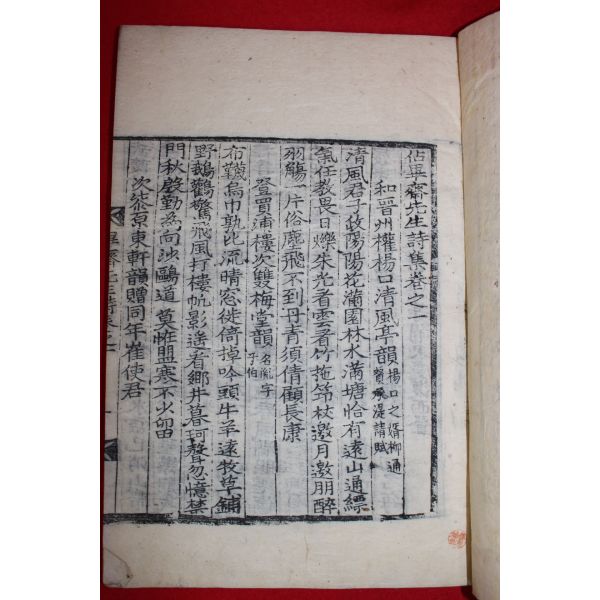 佔畢齋先生詩集卷之一
和晋州權楊口清風亭韻 楊口之婿柳通
賛永湜請賦
清風君子故陽陽花滿園林水滿塘恰有遠山通縹
氣任教畏日爍朱光看雲看竹拖筇杖邀月邀朋醉
羽觴一片俗塵飛不到丹青須倩顧長康
登買浦樓次雙梅堂韻 名胤字
子伯
布韈烏巾孰比流晴窓徙倚掉吟頭牛羊遠牧草鋪
野鵝鸛驚飛風打樓帆影遥看鄉井暮珂聲忽憶禁
門秋慇勤爲向沙鷗道莫恠盟寒不少留
次柒原東軒韻贈同年崔使君